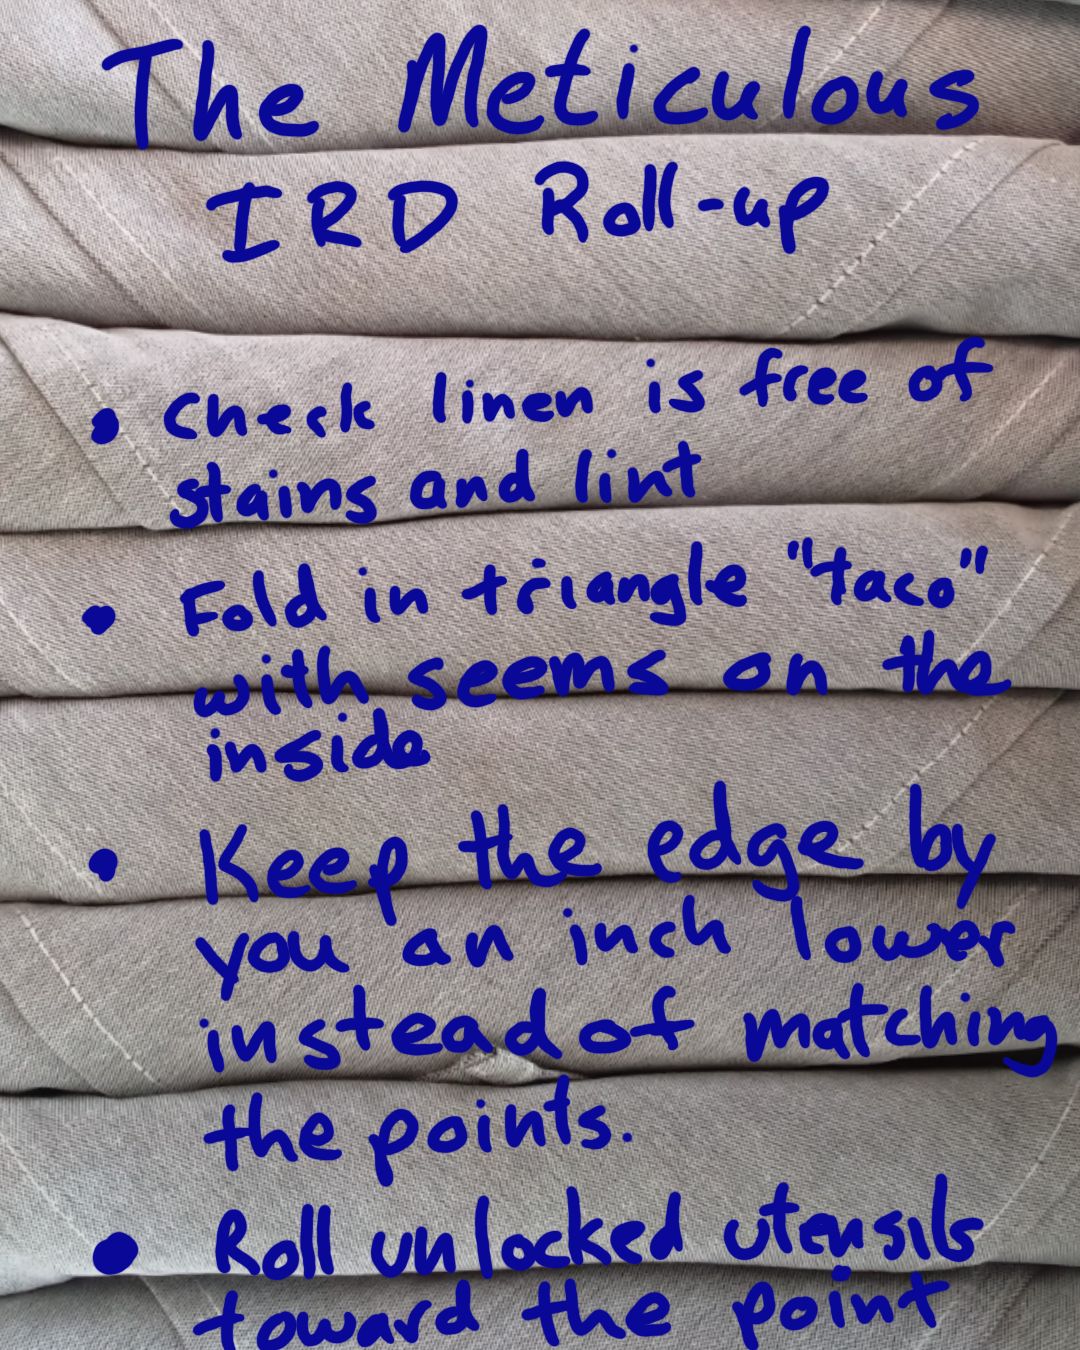 The Meticulous
IRD Roll-up
• Check linen is free of
stains and lint
• Fold in triangle "taco"
with seems on the
inside
• Keep the edge by
you an inch lower
instead of matching
the points.
• Roll unlocked utensils
toward the point